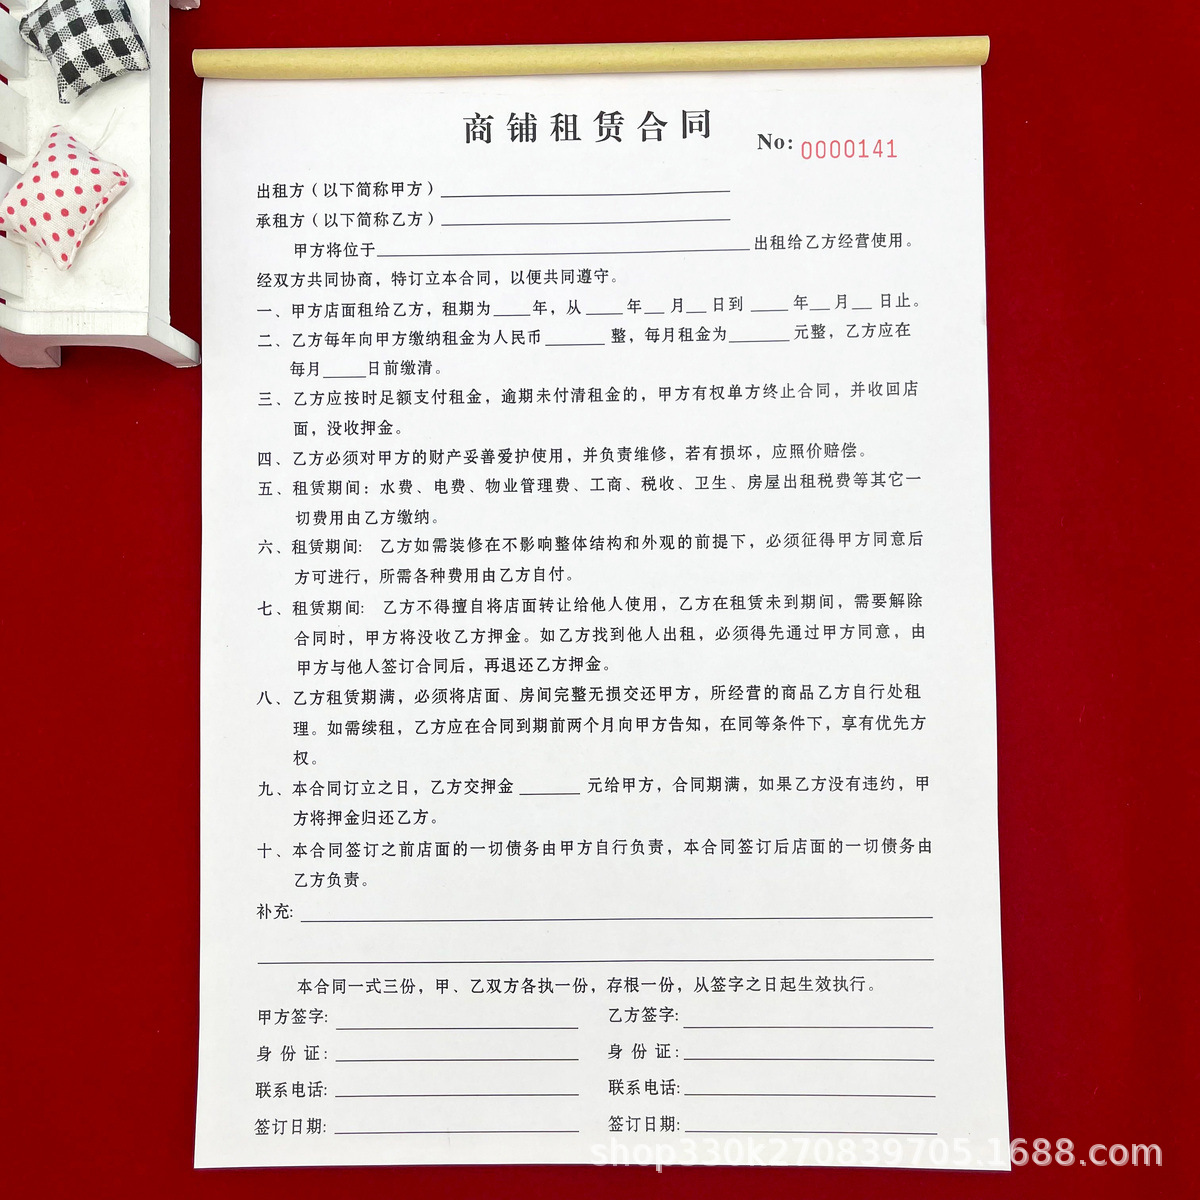 商铺租赁合同
No: 0000141
出租方（以下简称甲方）
承租方（以下简称乙方）
甲方将位于 出租给乙方经营使用。
经双方共同协商，特订立本合同，以便共同遵守。
一、甲方店面租给乙方，租期为____年，从____年__月__日到____年__月__日止。
二、乙方每年向甲方缴纳租金为人民币______整，每月租金为______元整，乙方应在
每月____日前缴清。
三、乙方应按时足额支付租金，逾期未付清租金的，甲方有权单方终止合同，并收回店
面，没收押金。
四、乙方必须对甲方的财产妥善爱护使用，并负责维修，若有损坏，应照价赔偿。
五、租赁期间：水费、电费、物业管理费、工商、税收、卫生、房屋出租税费等其它一
切费用由乙方缴纳。
六、租赁期间： 乙方如需装修在不影响整体结构和外观的前提下，必须征得甲方同意后
方可进行，所需各种费用由乙方自付。
七、租赁期间： 乙方不得擅自将店面转让给他人使用，乙方在租赁未到期间，需要解除
合同时，甲方将没收乙方押金。如乙方找到他人出租，必须得先通过甲方同意，由
甲方与他人签订合同后，再退还乙方押金。
八、乙方租赁期满，必须将店面、房间完整无损交还甲方，所经营的商品乙方自行处租
理。如需续租，乙方应在合同到期前两个月向甲方告知，在同等条件下，享有优先方
权。
九、本合同订立之日，乙方交押金______元给甲方，合同期满，如果乙方没有违约，甲
方将押金归还乙方。
十、本合同签订之前店面的一切债务由甲方自行负责，本合同签订后店面的一切债务由
乙方负责。
补充:
本合同一式三份，甲、乙双方各执一份，存根一份，从签字之日起生效执行。
甲方签字: 乙方签字:
身份证: 身份证:
联系电话: 联系电话:
签订日期: 签订日期:
shop330k270839705.1688.com